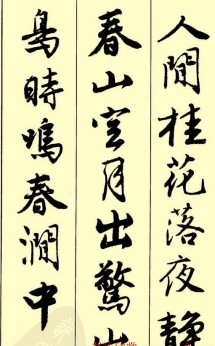 人間桂花落夜静
春山空月出驚山
鳥時鳴春澗中